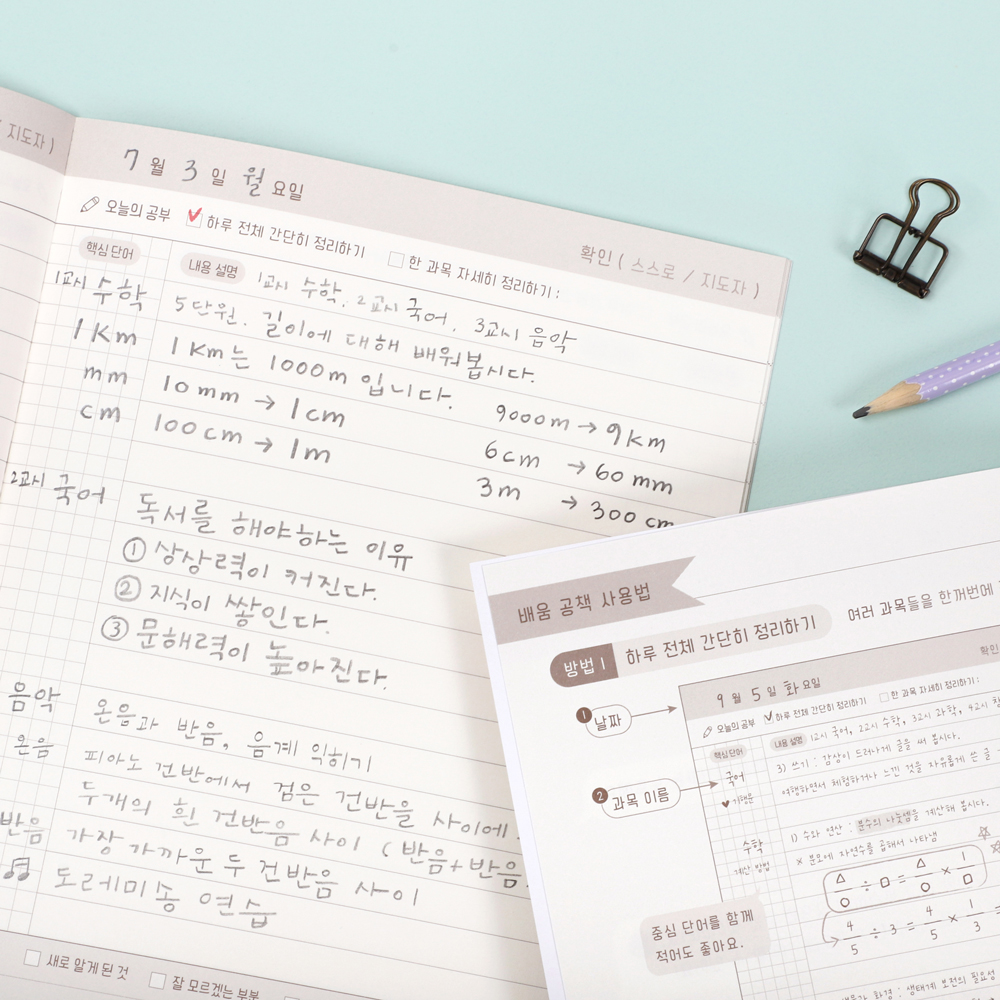 / 지도자 )
7 월 3 일 월 요일
확인 ( 스스로 / 지도자 )
오늘의 공부 ✓ 하루 전체 간단히 정리하기 □ 한 과목 자세히 정리하기 :
핵심 단어 내용 설명
1교시 수학 1교시 수학, 2교시 국어, 3교시 음악
5단원. 길이에 대해 배워봅시다.
1Km 1Km는 1000m 입니다.
mm 10mm → 1cm 9000m → 9km
cm 100cm → 1m 6cm → 60mm
3m → 300 cm
2교시 국어 독서를 해야하는 이유
① 상상력이 커진다.
② 지식이 쌓인다.
③ 문해력이 높아진다.
음악 온음과 반음, 음계 익히기
온음 피아노 건반에서 검은 건반을 사이에
두개의 흰 건반음 사이 ( 반음+반음
반음 가장 가까운 두 건반음 사이
도레미송 연습
□ 새로 알게 된 것 □ 잘 모르겠는 부분
배움 공책 사용법
방법 1 하루 전체 간단히 정리하기 여러 과목들을 한꺼번에
1 날짜
2 과목 이름
중심 단어를 함께
적어도 좋아요.
9 월 5 일 화 요일
확인
오늘의 공부 ✓ 하루 전체 간단히 정리하기 □ 한 과목 자세히 정리하기 :
핵심 단어 내용 설명 1교시 국어, 2교시 수학, 3교시 과학, 4교시
국어 3) 쓰기 : 감상이 드러나게 글을 써 봅시다.
♥ 기행문 여행하면서 체험하거나 느낀 것을 자유롭게 쓴 글
수학 1) 수와 연산 : 분수의 나눗셈을 계산해 봅시다.
계산 방법 × 분모에 자연수를 곱해서 나타냄
△/○ ÷ □ = △/○ × 1/□
4/5 ÷ 3 = 4/5 × 1/3
: 생태계 보전의 필요성